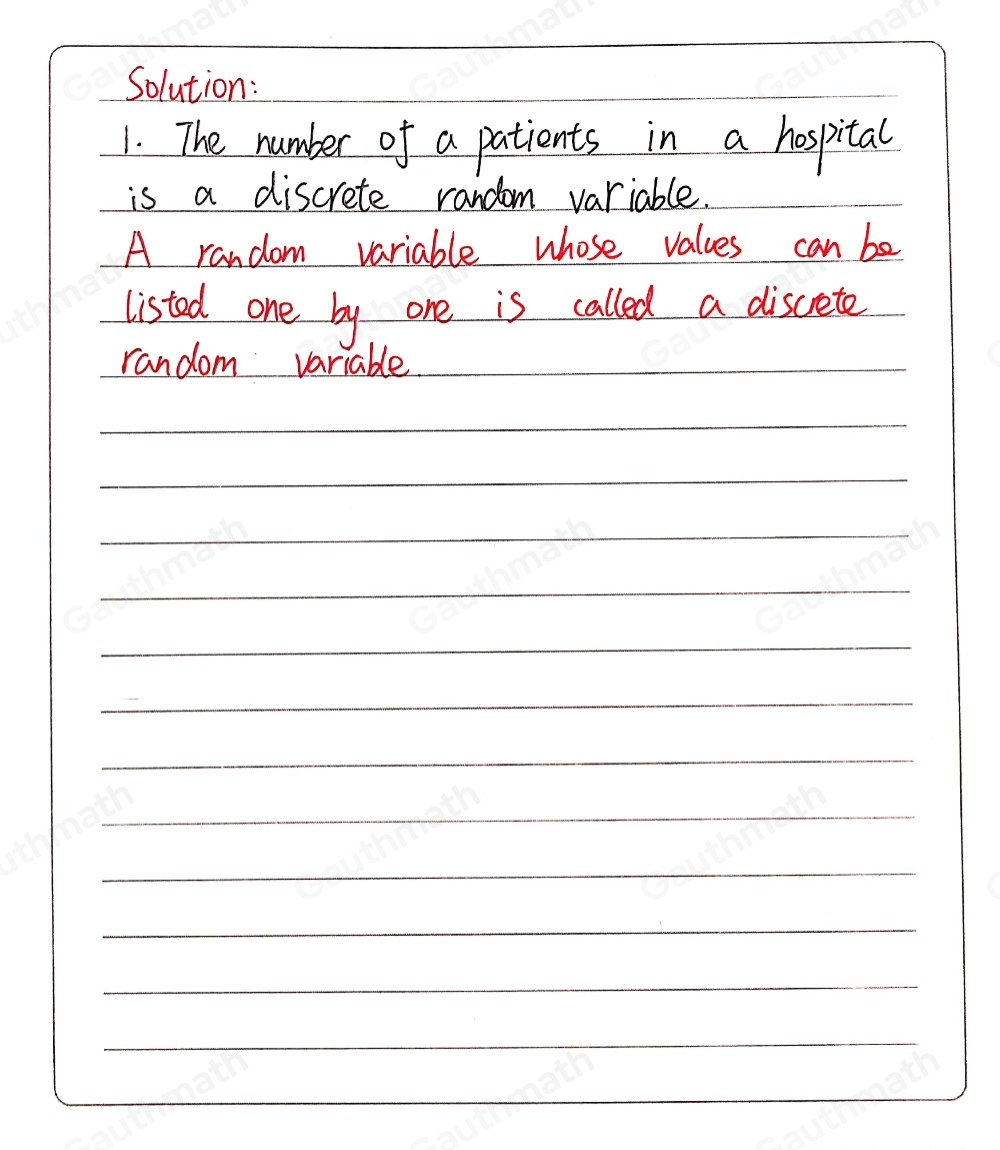 Solution:
1. The number of a patients in a hospital
is a discrete random variable.
A random variable whose values can be
listed one by one is called a discrete
random variable.